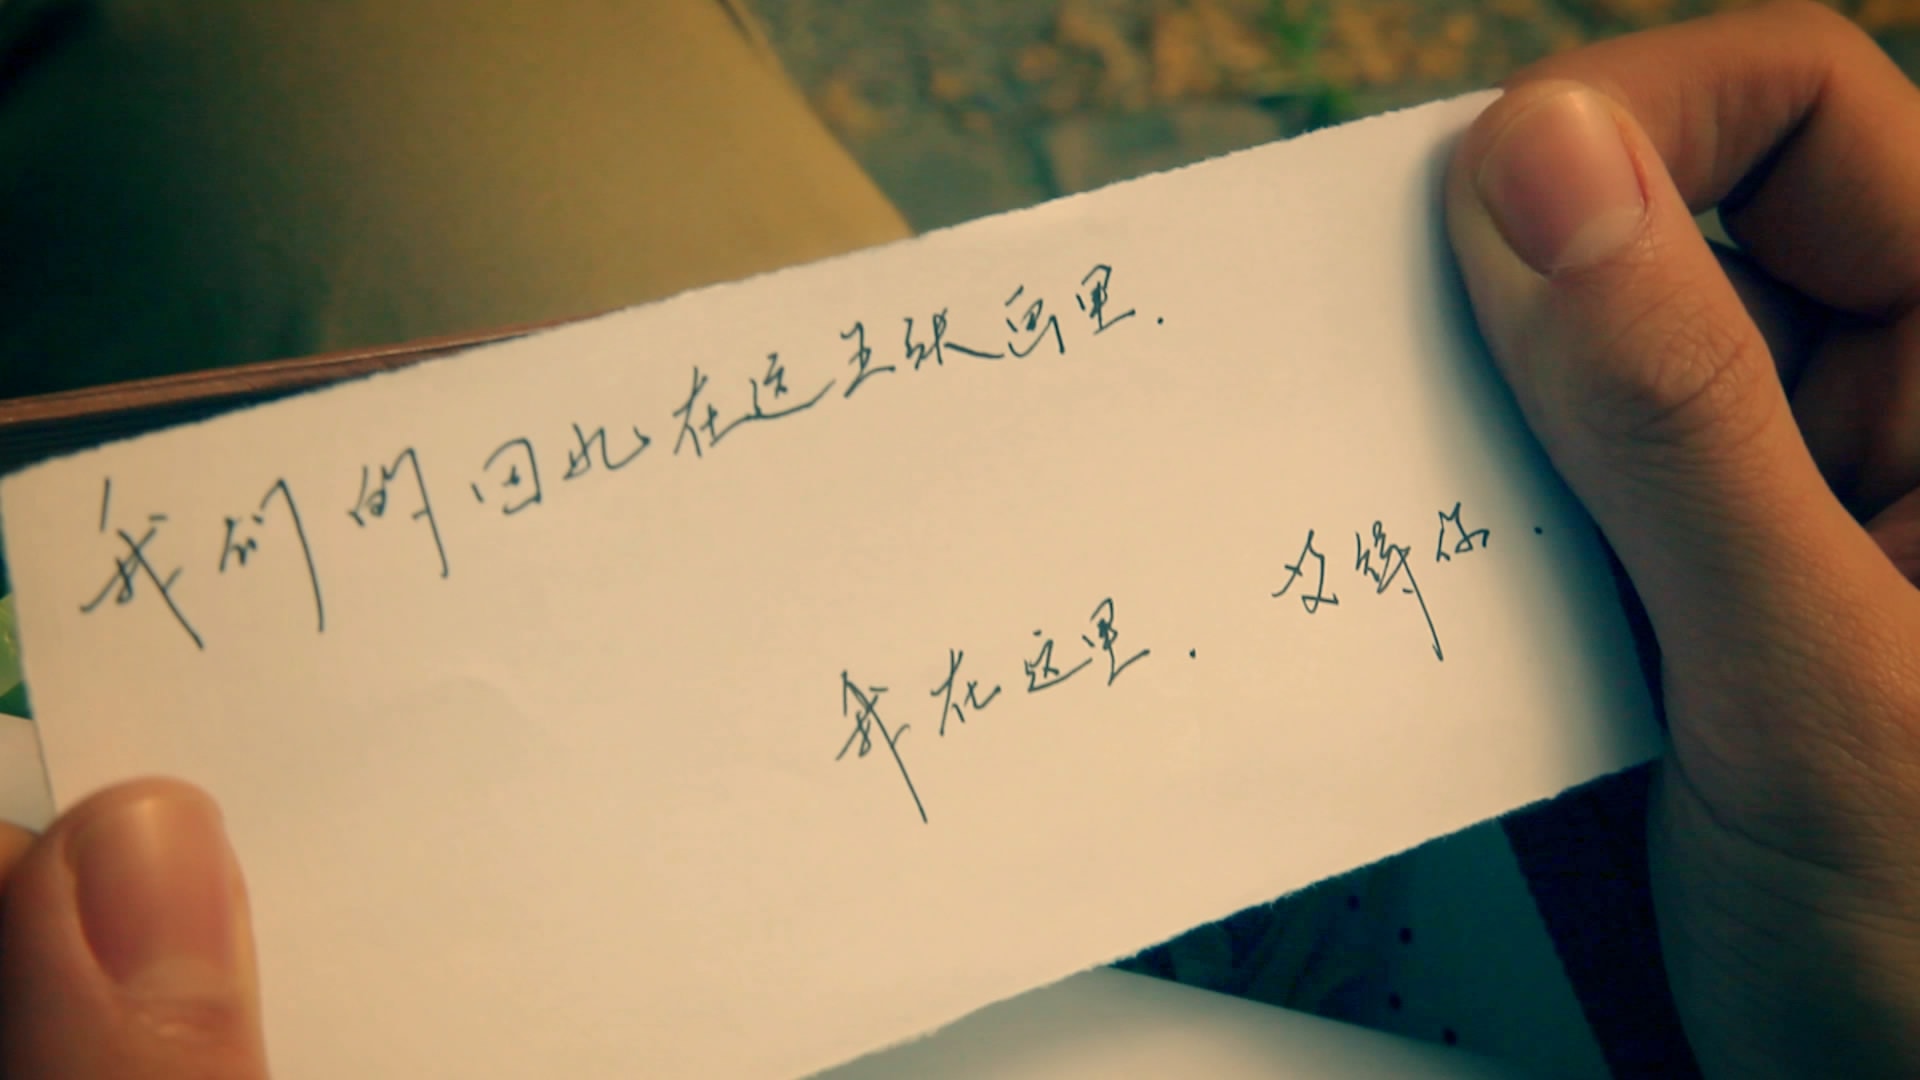 我们的回忆在这五张画里.
我在这里. 等你.